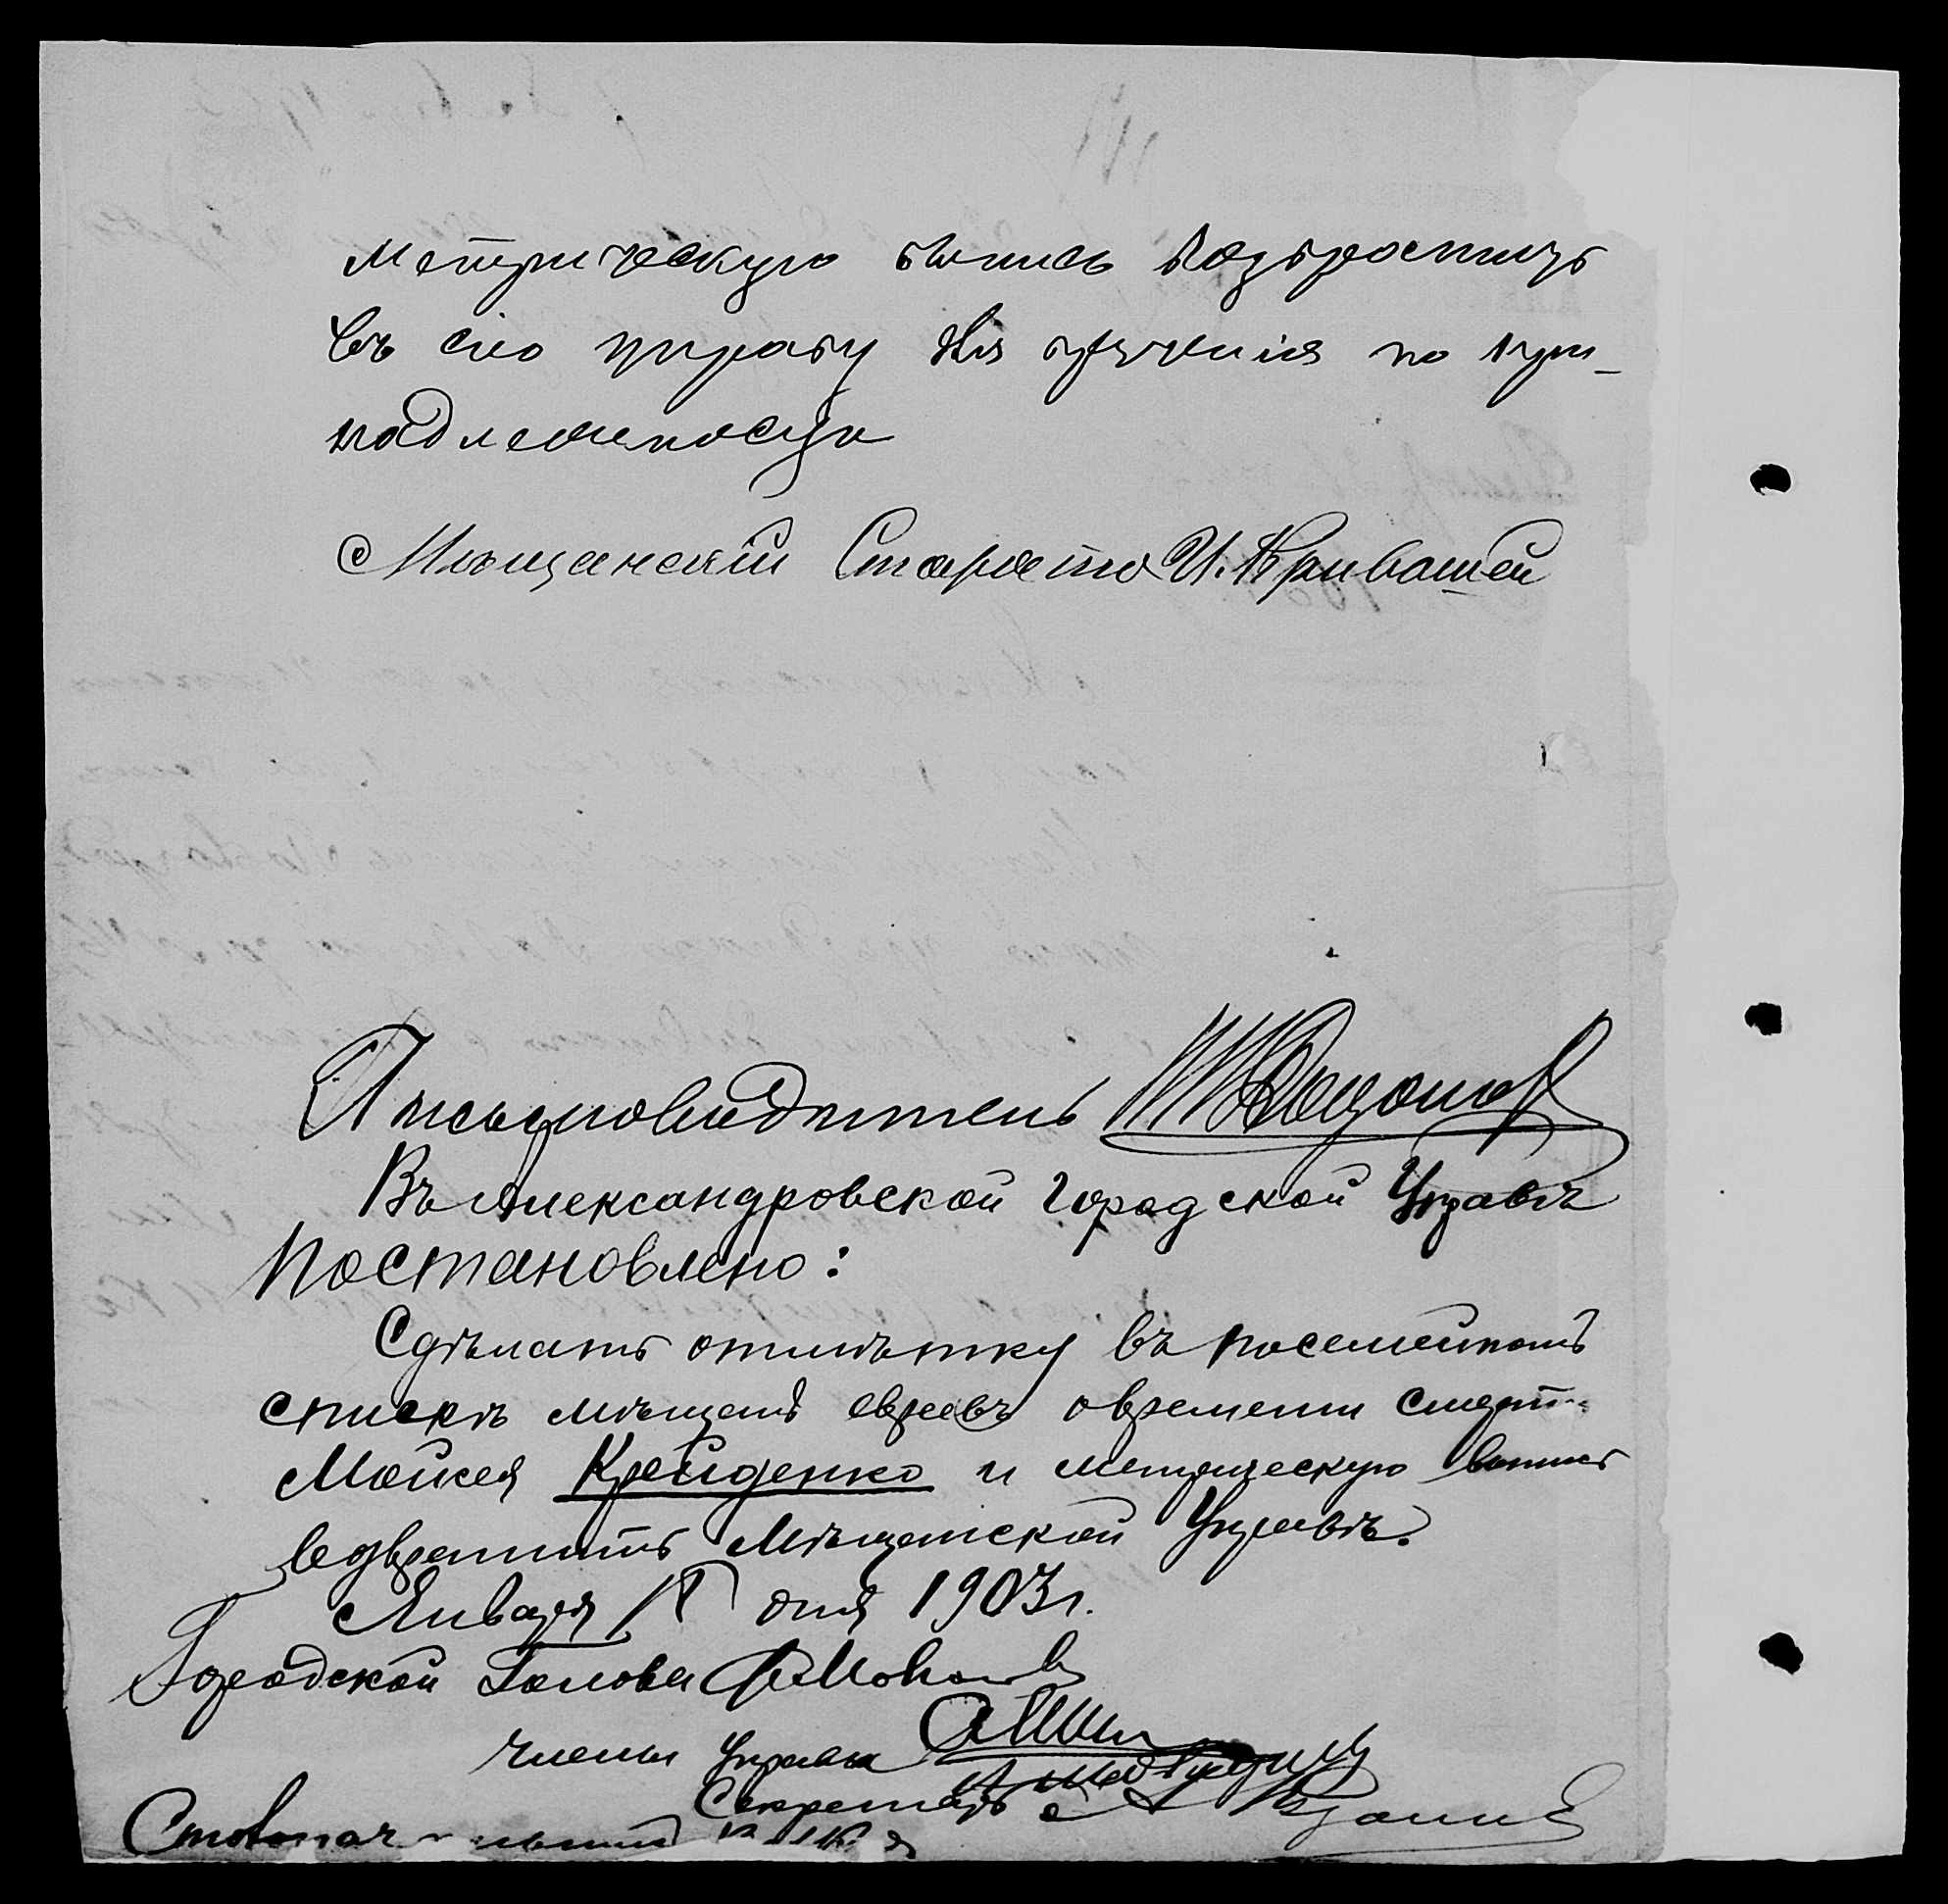 метрическую выпись возвратить
въ сію управу для врученія по при-
надлежности
Мѣщанскій Староста И. Кривошей
Письмоводитель
Въ Александровской городской Управѣ
постановлено:
Сдѣлать отмѣтку въ посемейномъ
спискѣ мѣщанъ евреевъ о времени смерти
Мойсея Крейденко и метрическую выпись
возвратить Мѣщанской Управѣ.
Января дня 1903 г.
Городской Голова
Члены Управы
Секретарь
Столоначальникъ